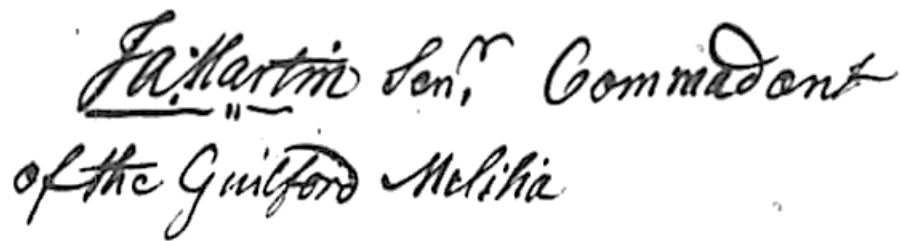 Ja. Martin Senr. Commadont
of the Guilford Melitia